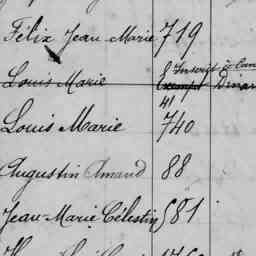 Félix Jean Marie 719
Inscrit à
Louis Marie Exempt Dinan
41
Louis Marie 740
Augustin Amand 88
Jean-Marie Célestin 681